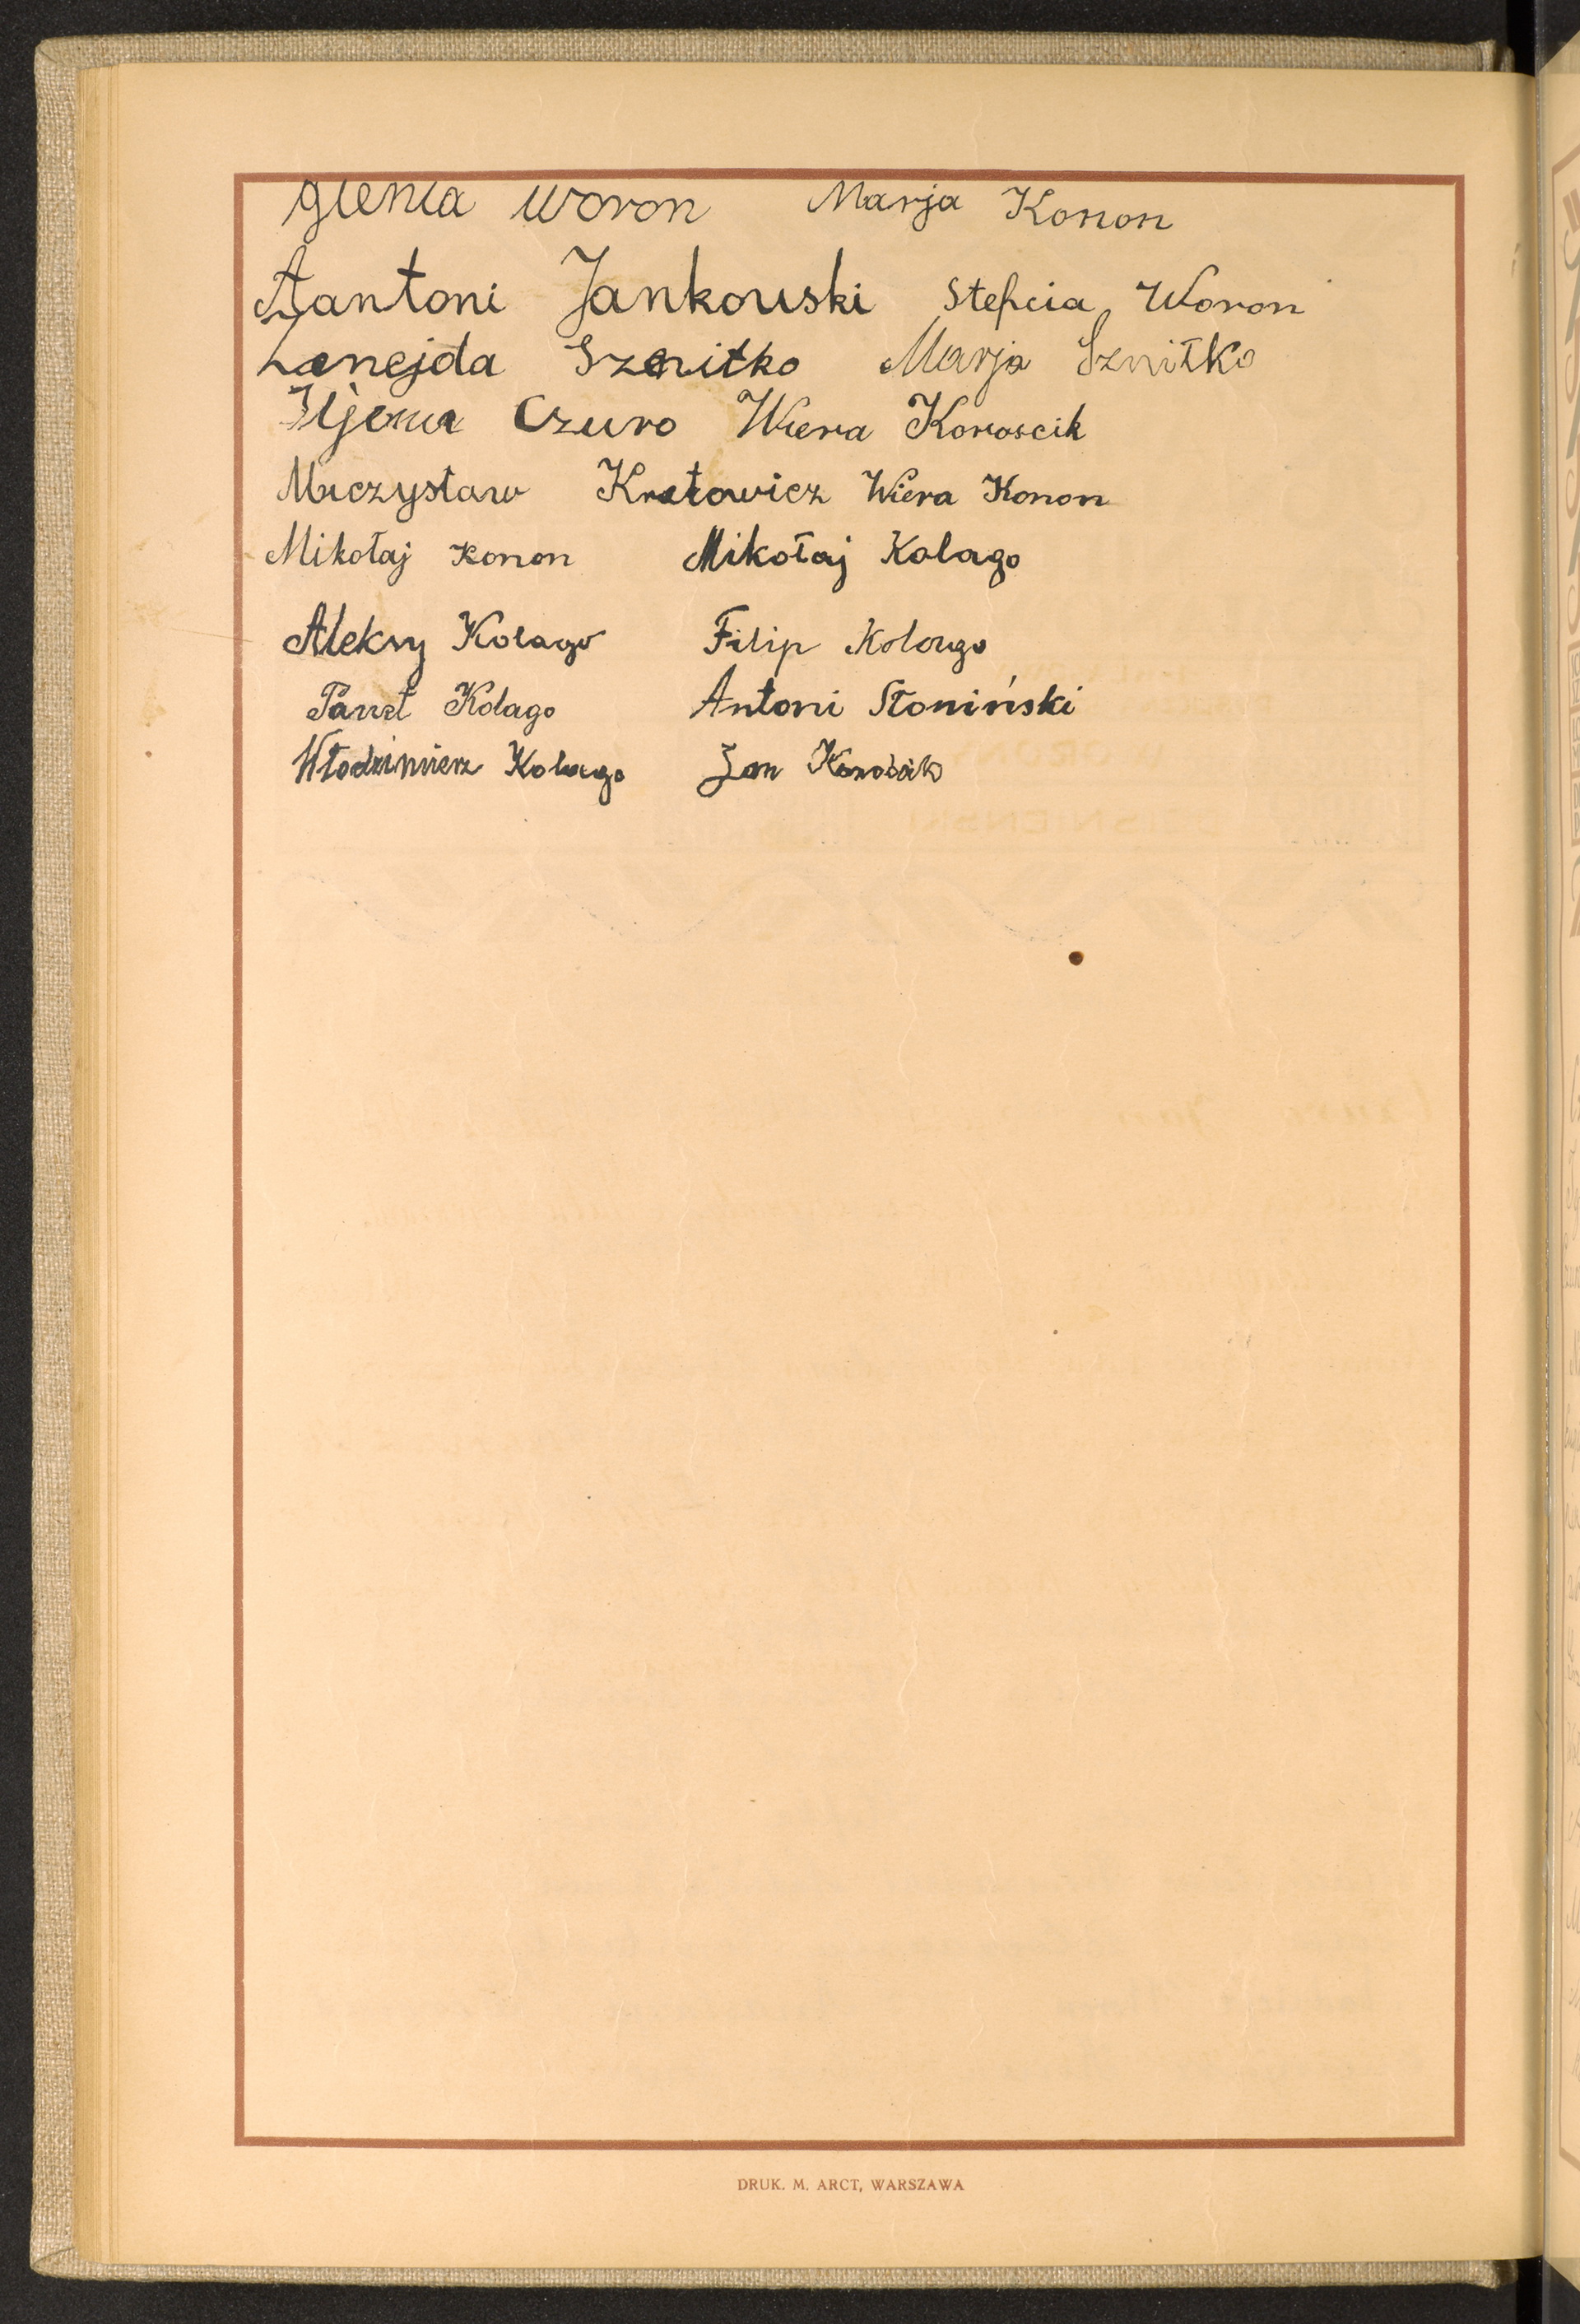 Gienia Woron Marja Konon
Aantoni Jankouski Stefcia Woron
Zenejda Sznitko Marja Sznitko
Czuro Wiera Koroscik
Mieczysław Kratowicz Wiera Konon
Mikołaj Konon Mikołaj Kolago
Aleksy Kolago Filip Kolago
Paweł Kolago Antoni Słoniński
Włodzimierz Kolago Jan
DRUK. M. ARCT, WARSZAWA